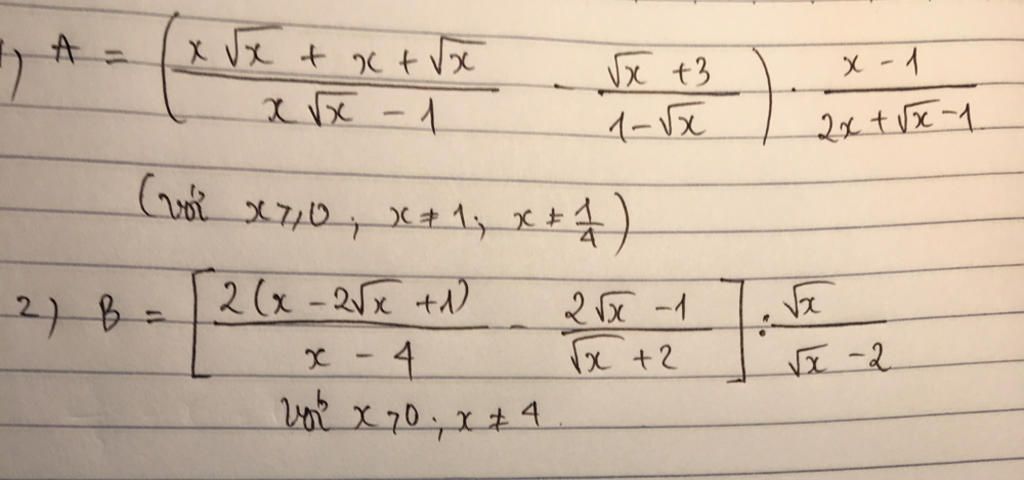 1) A = ( (x√x + x + √x)/(x√x - 1) - (√x + 3)/(1 - √x) ) . (x - 1)/(2x + √x - 1)
(với x ≥ 0; x ≠ 1; x ≠ 1/4)
2) B = [ (2(x - 2√x + 1))/(x - 4) - (2√x - 1)/(√x + 2) ] : √x/(√x - 2)
với x > 0; x ≠ 4.